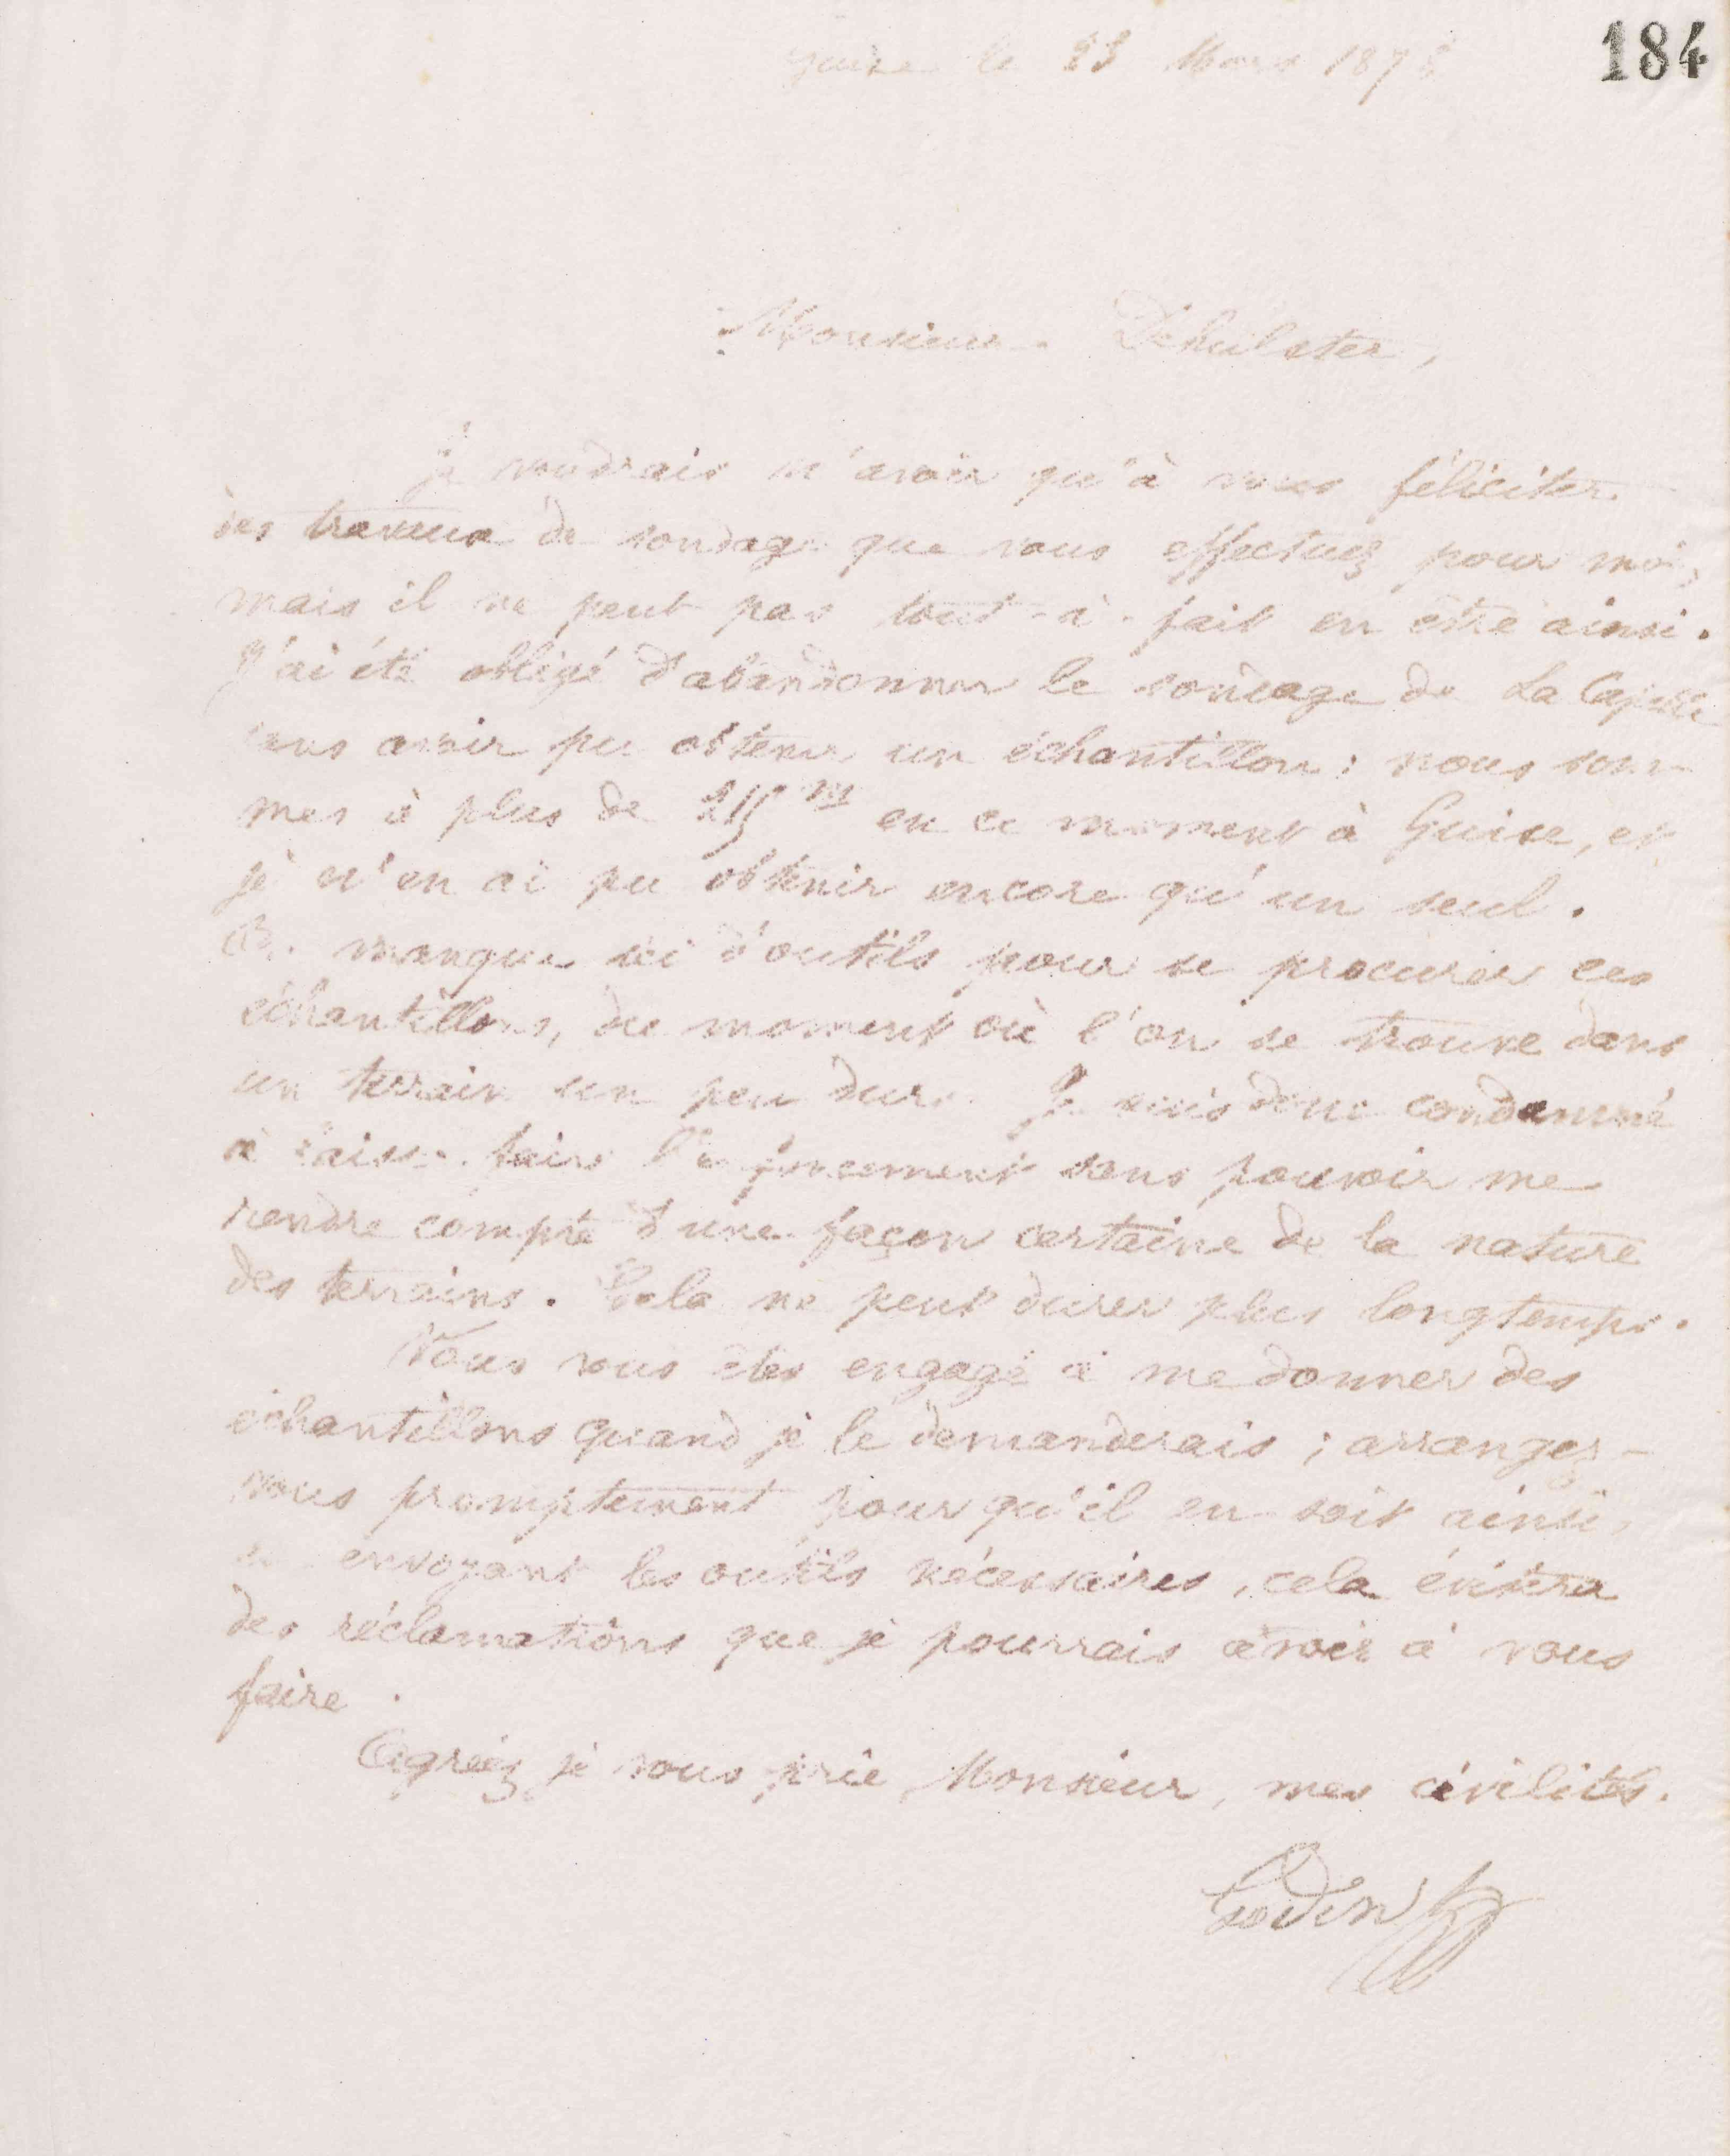 184
Guise le 23 Mars 1878
Monsieur Dehulster,
Je voudrais n'avoir qu'à vous féliciter
des travaux de sondage que vous effectuez pour moi,
mais il ne peut pas tout-à-fait en être ainsi.
J'ai été obligé d'abandonner le sondage de La Capelle
sans avoir pu obtenir un échantillon : nous som-
mes à plus de 215 m en ce moment à Guise, et
je n'en ai pu obtenir encore qu'un seul.
On manque ici d'outils pour se procurer ces
échantillons, du moment où l'on se trouve dans
un terrain un peu dur. Je suis donc condamné
à laisser faire l'enfoncement sans pouvoir me
rendre compte d'une façon certaine de la nature
des terrains. Cela ne peut durer plus longtemps.
Vous vous êtes engagé à me donner des
échantillons quand je le demanderais ; arrangez-
vous promptement pour qu'il en soit ainsi,
en envoyant les outils nécessaires, cela évitera
des réclamations que je pourrais avoir à vous
faire.
Agréez je vous prie Monsieur, mes civilités.
Godin